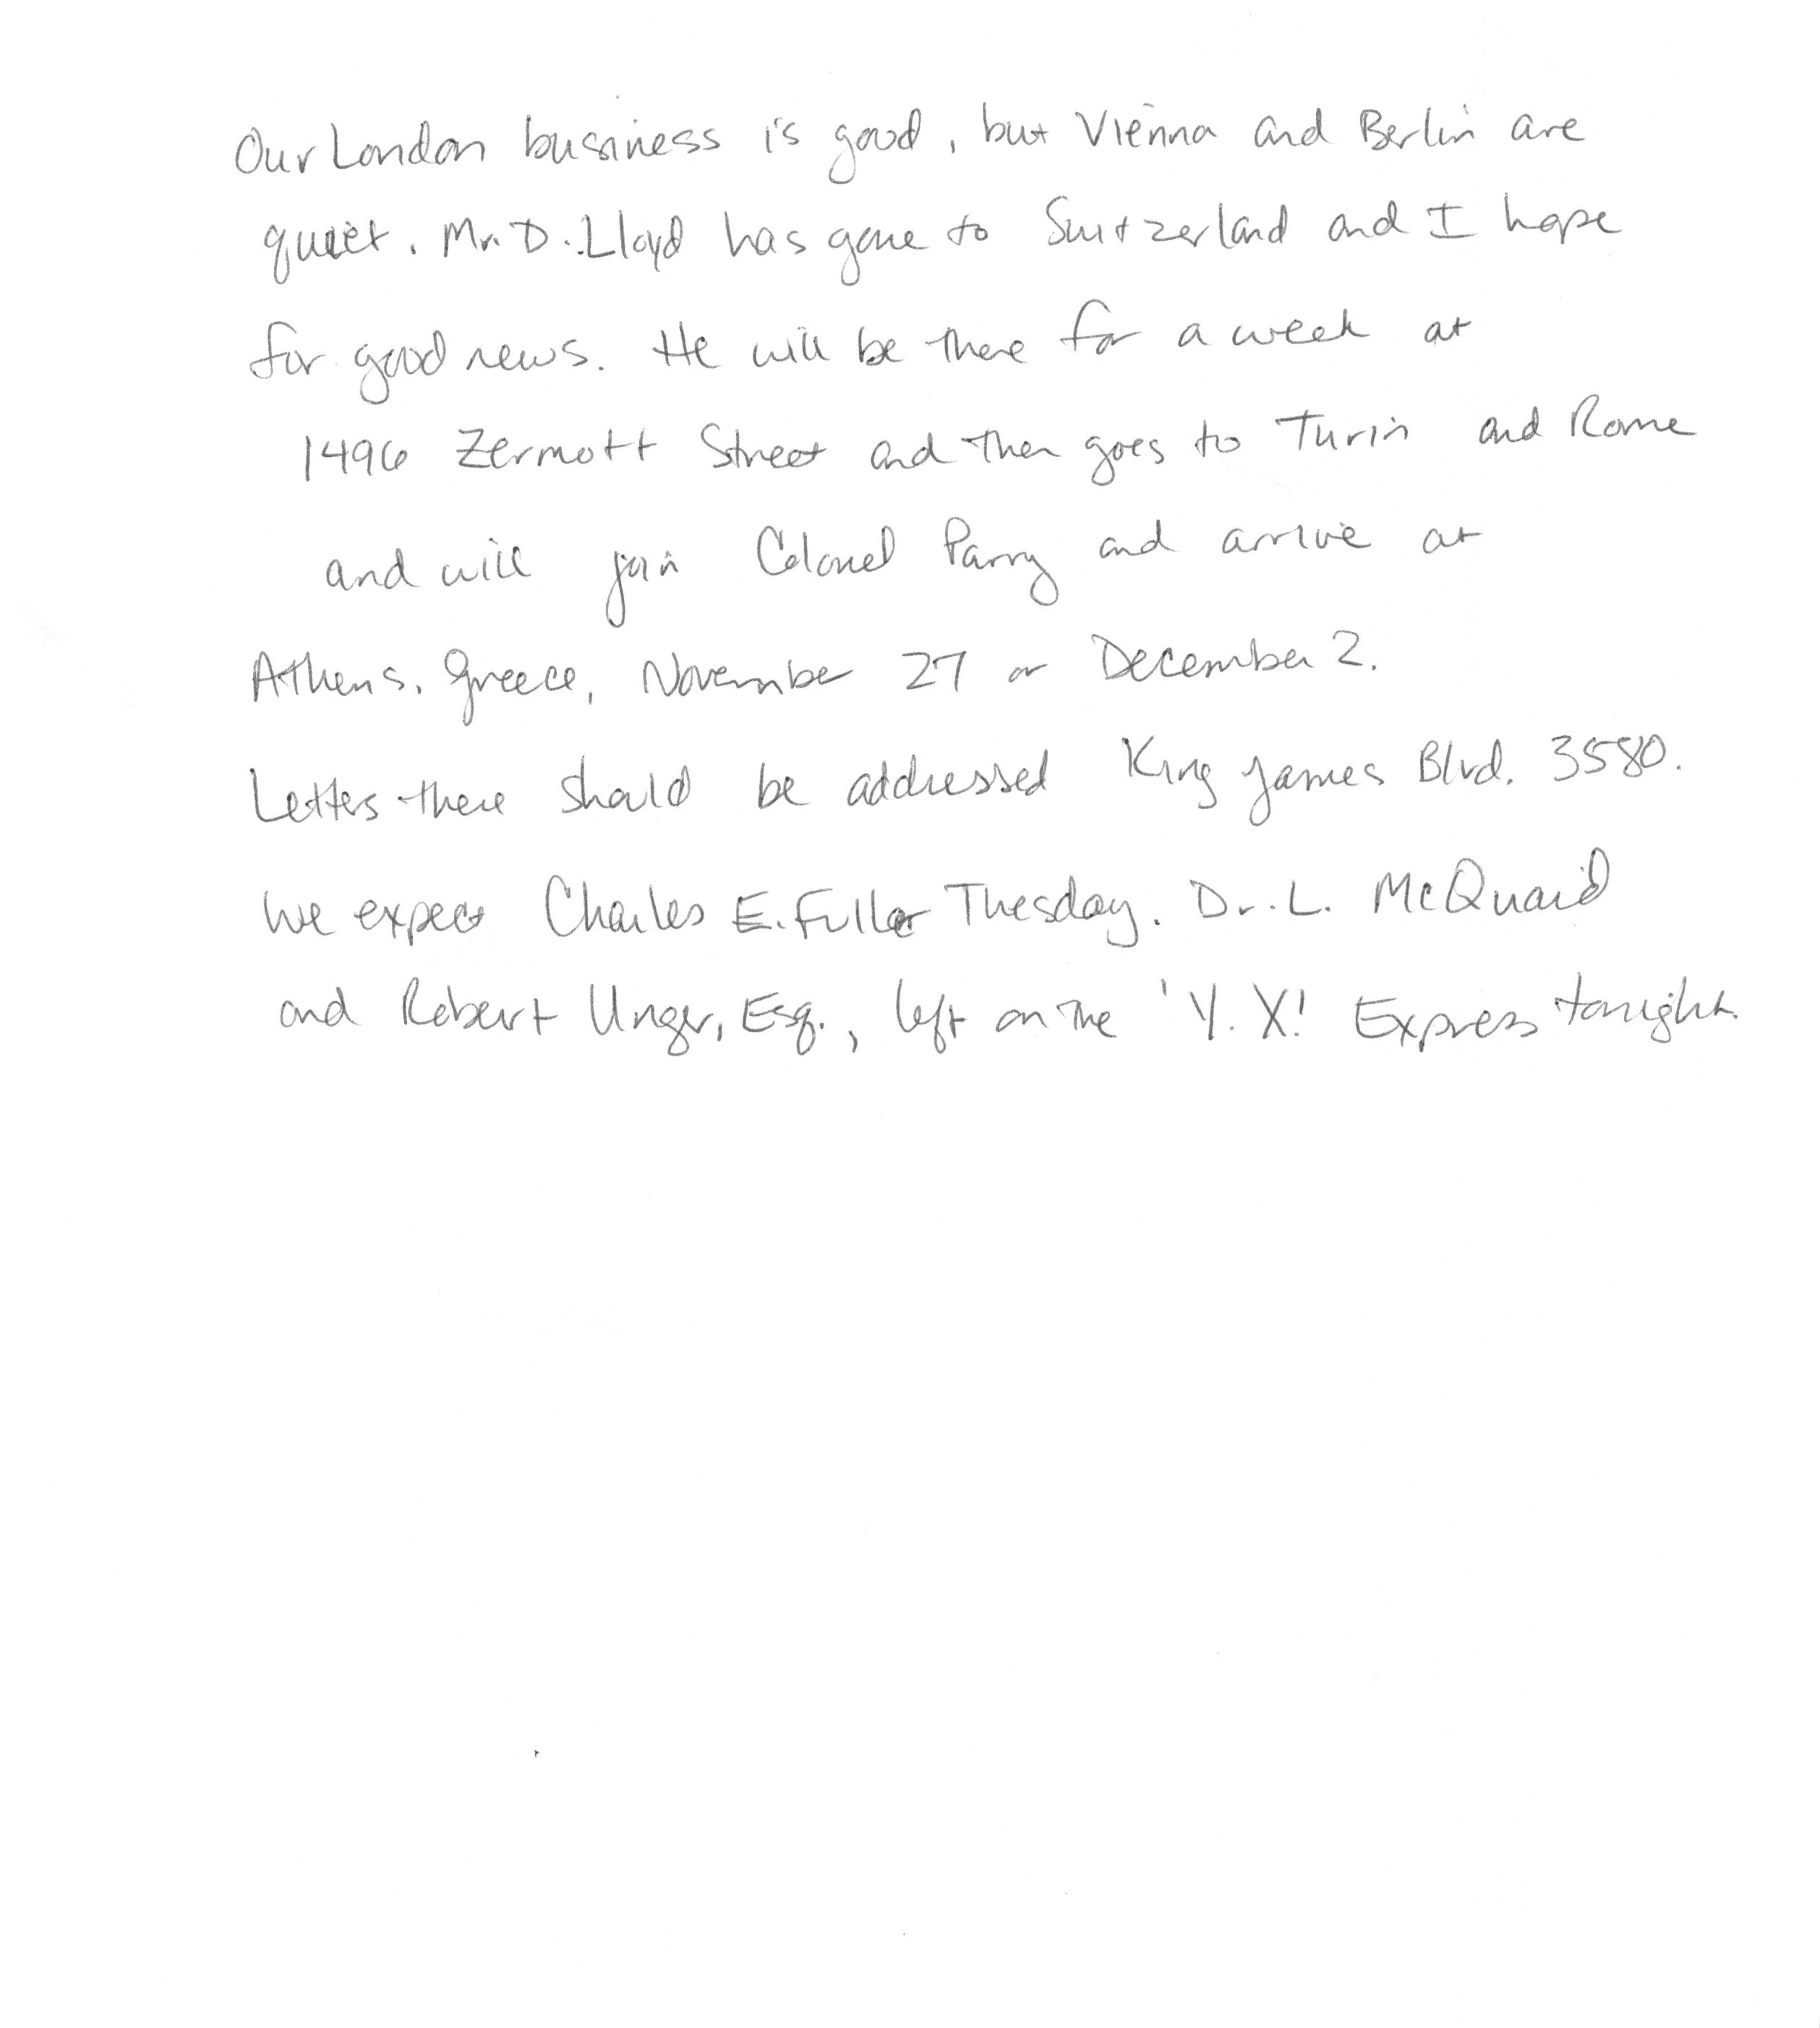 Our London business is good, but Vienna and Berlin are
quiet. Mr. D. Lloyd has gone to Switzerland and I hope
for good news. He will be there for a week at
1496 Zermott Street and then goes to Turin and Rome
and will join Colonel Parry and arrive at
Athens, Greece, November 27 or December 2.
Letters there should be addressed King James Blvd. 3580.
We expect Charles E. Fuller Tuesday. Dr. L. McQuaid
and Robert Unger, Esq., left on the 'Y. X.' Express tonight.